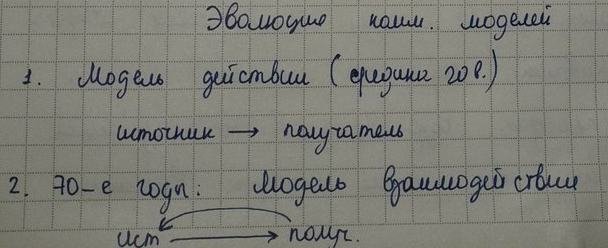 Эволюция комм. моделей
1. Модель действии (средина 20 в.)
источник → получатель
2. 70-е годы: Модель взаимодействии
ист → получ.